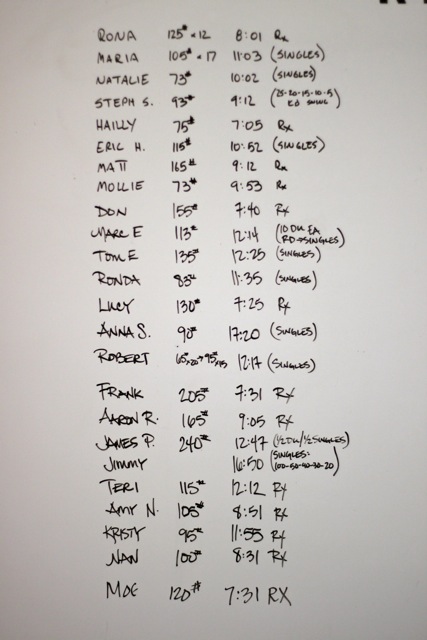 RONA 125# x 12 8:01 Rx
MARIA 105# x 17 11:03 (SINGLES)
NATALIE 73# 10:02 (SINGLES)
STEPH S. 93# 9:12 (25-20-15-10-5
HAILLY 75# 7:05 Rx
ERIC H. 115# 10:52 (SINGLES)
MATT 165# 9:12 Rx
MOLLIE 73# 9:53 Rx
DON 155# 7:40 Rx
MARC E 113# 12:14 (10 DU EA RD → SINGLES)
TOM E 135# 12:25 (SINGLES)
RONDA 83# 11:35 (SINGLES)
LUCY 130# 7:25 Rx
ANNA S. 90# 17:20 (SINGLES)
ROBERT 65# x20 → 95# x15 12:17 (SINGLES)
FRANK 205# 7:31 Rx
AARON R. 165# 9:05 Rx
JAMES P. 240# 12:47 (1/2 DU/1/2 SINGLES)
JIMMY 16:50 (SINGLES: 100-50-40-30-20)
TERI 115# 12:12 Rx
AMY N. 105# 8:51 Rx
KRISTY 95# 11:55 Rx
NAN 100# 8:31 Rx
MOE 120# 7:31 RX